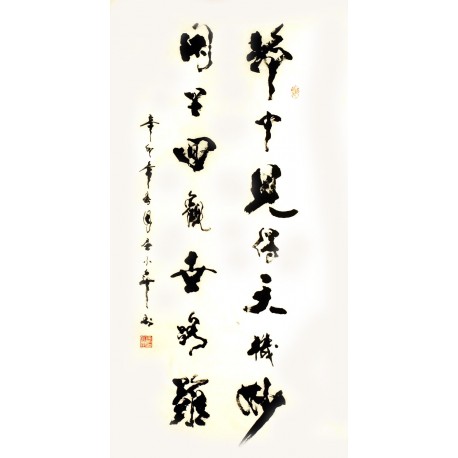 靜中見得天機妙
閑里回觀世路難
辛卯年春月